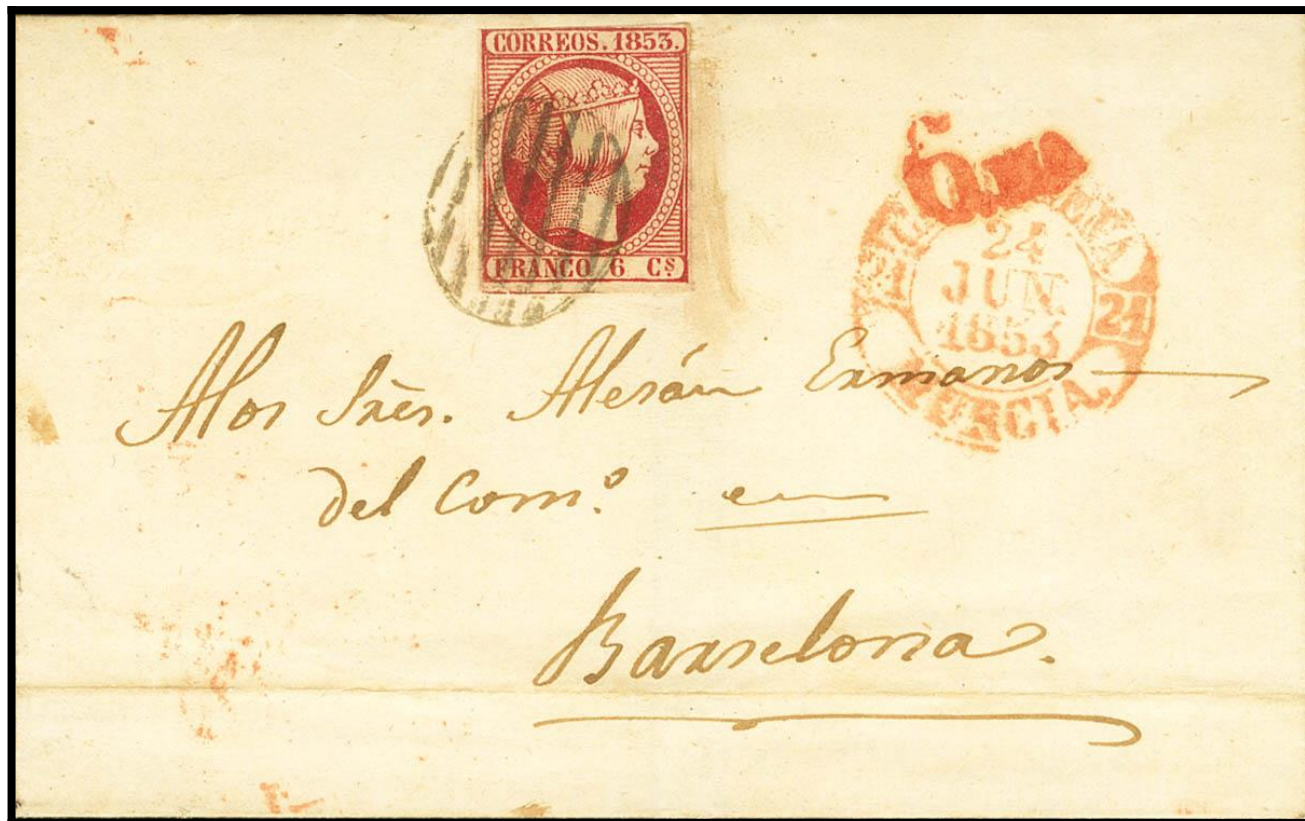 CORREOS. 1853.
FRANCO 6 Cs
6 ms
24
JUN.
1853
21
MURCIA.
Alos Sres. Alesán Ermanos
del Comº. en
Barselona.